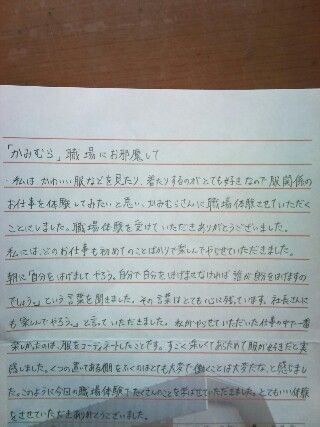 「かみむら」職場にお邪魔して
私はかわいい服などを見たり、着たりするのがとても好きなので服関係の
お仕事を体験してみたいと思い、かみむらさんに職場体験させていただく
ことにしました。職場体験を受けていただきありがとうございました。
私には、どのお仕事も初めてのことばかりで楽しんでやらせていただきました。
朝に「自分をはげましてやろう。自分で自分をはげまさなければ誰が自分をはげますの
でしょう。」という言葉を聞きました。その言葉はとても心に残っています。社長さんに
も「楽しんでやろう。」と言っていただきました。私がやらせていただいた仕事の中で一番
楽しかったのは、服をコーディネートしたことです。すごく楽しくてあらためて服が好きだと実
感しました。くつの置いてある棚をふくのはとても大変で、働くことは大変だな、と感じまし
た。このように今回の職場体験でたくさんのことを学ばせていただきました。とてもいい体験
をさせていただきありがとうございました。